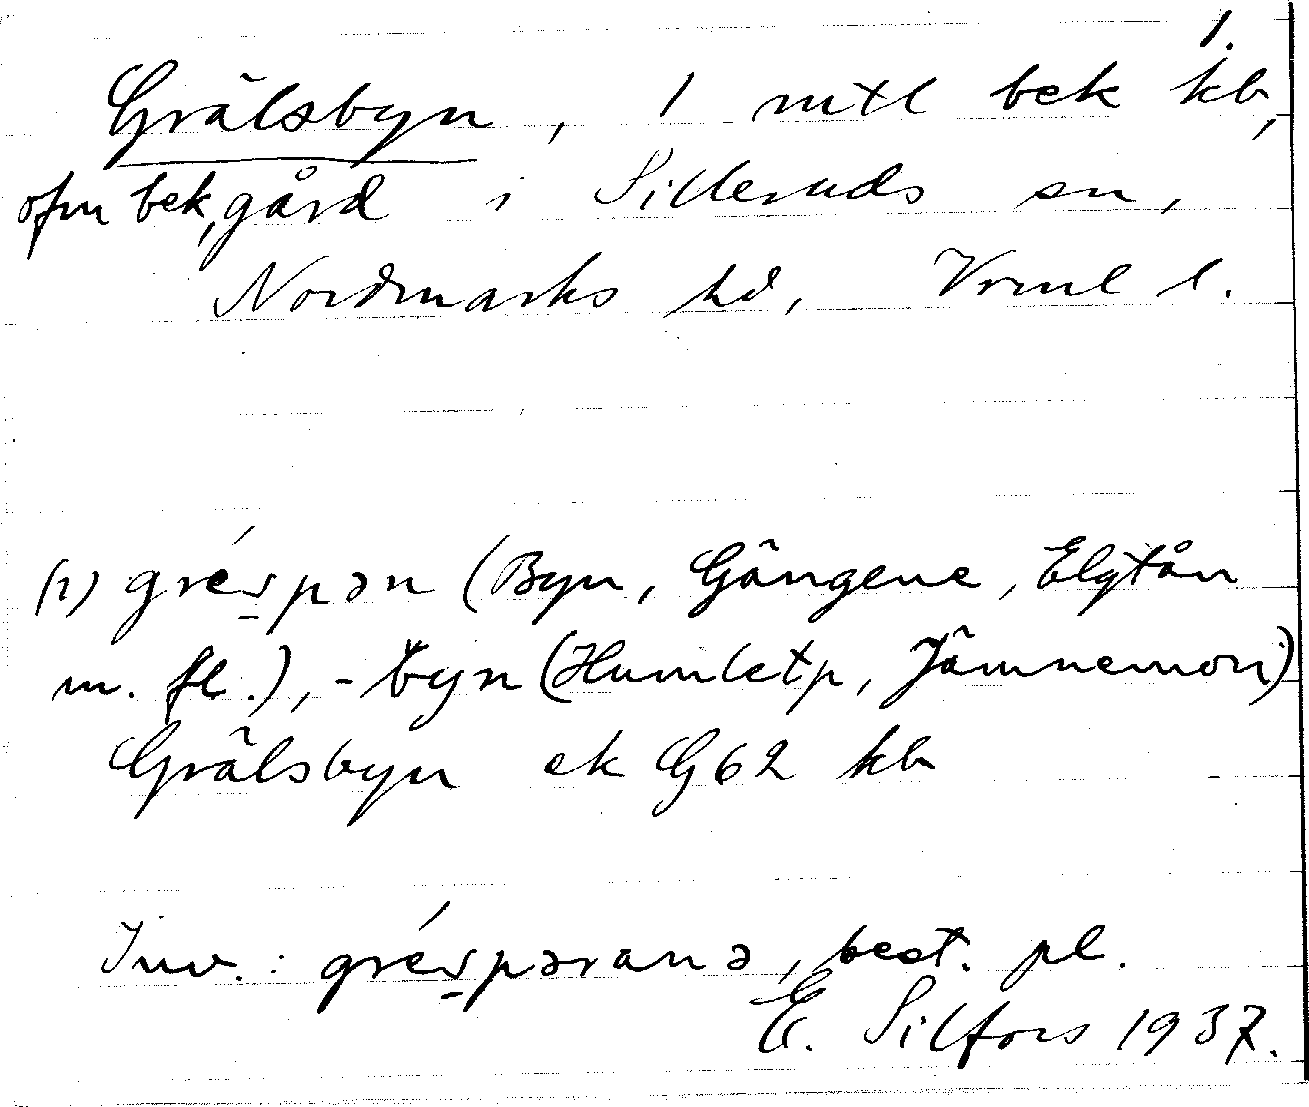 1.
Grälsbyn, 1 mtl bek kb,
ofm bek, gård i Silleruds sn,
Nordmarks hd, Vrml l.
(1) grés̱pən (Byn, Gängene, Elgtån
m. fl.), -byn (Humletp, Jämnemon)
Grälsbyn ek G62 kb
Inv.: grés̱pərana, best. pl.
E. Silfors 1937.